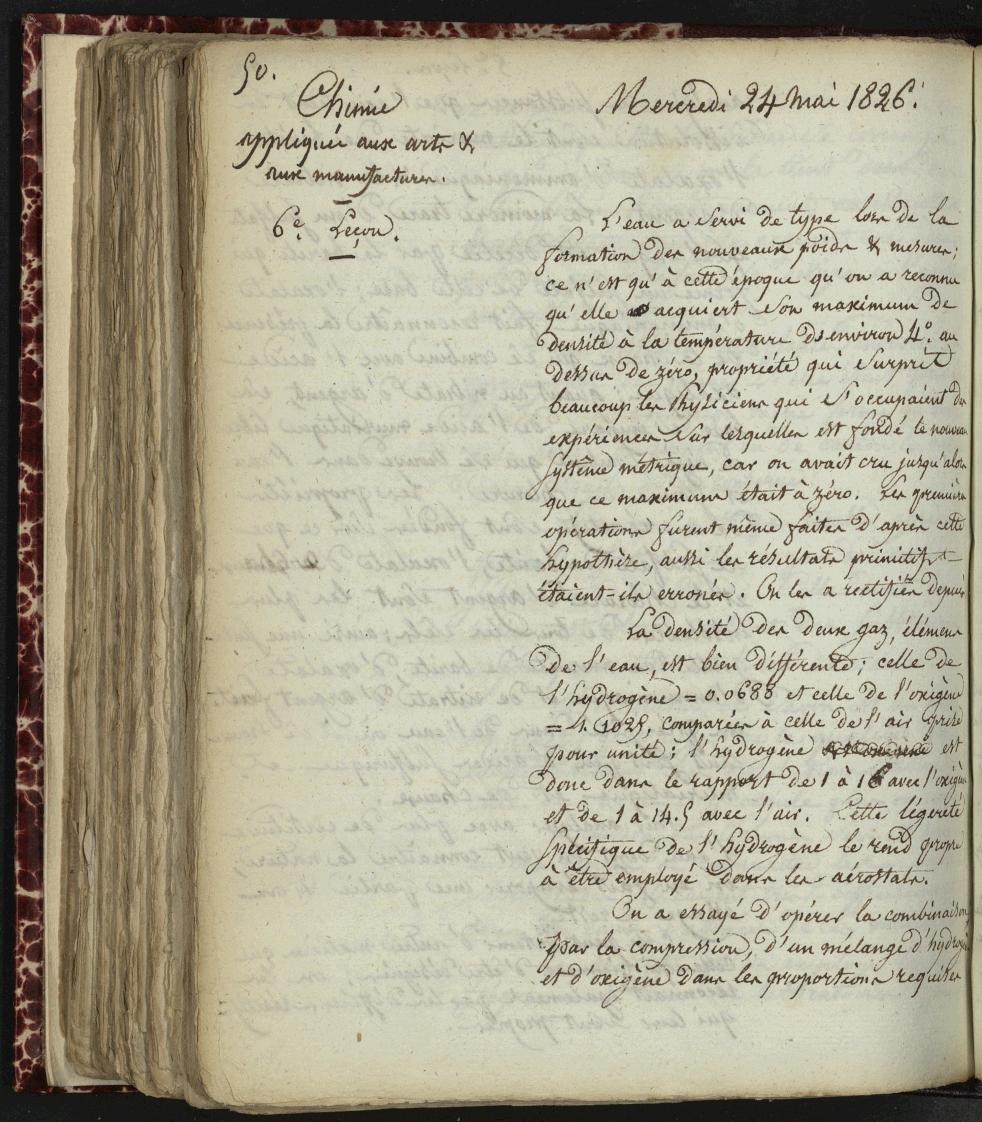 50.
Chimie
appliquée aux arts &
aux manufactures.
6e. Leçon.
Mercredi 24 mai 1826.
L'eau a servi de type lors de la
formation des nouveaux poids & mesures;
ce n'est qu'à cette époque qu'on a reconnu
qu'elle acquiert son maximum de
densité à la température d'environ 4°. au
dessus de zéro, propriété qui surprit
beaucoup les physiciens qui s'occupaient des
expériences sur lesquelles est fondé le nouveau
système métrique, car on avait cru jusqu'alors
que ce maximum était à zéro. Les premières
opérations furent même faites d'après cette
hypothèse, aussi les résultats primitifs
étaient-ils erronés. On les a rectifiés depuis
La densité des deux gaz, élémens
de l'eau, est bien différente; celle de
l'hydrogène = 0.0688 et celle de l'oxigène
= 1.1025, comparées à celle de l'air prise
pour unité; l'hydrogène est
donc dans le rapport de 1 à 16 avec l'oxigène
et de 1 à 14.5 avec l'air. Cette légereté
spécifique de l'hydrogène le rend propre
à être employé dans les aérostats.
On a essayé d'opérer la combinaison,
par la compression, d'un mélange d'hydrogène
et d'oxigène dans les proportions requises